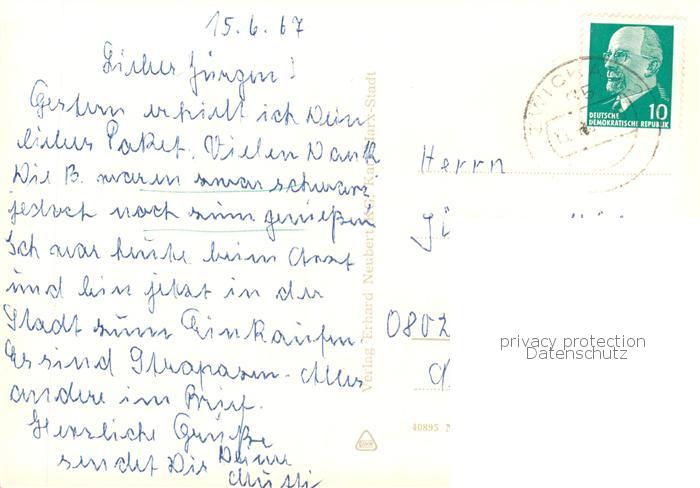 15.6.67
Lieber Jürgen!
Gestern erhielt ich Dein
liebes Paket. Vielen Dank
Die B. waren zwar schwarz
jedoch noch zum genießen
Ich war heute beim Arzt
und bin jetzt in der
Stadt zum Einkaufen.
Es sind Strapazen. Alles
andere im Brief.
Herzliche Grüße
sendet Dir Deine
Mutti
Verlag Erhard Neubert KG, Karl-Marx-Stadt
40895
ZWICKA
DEUTSCHE
DEMOKRATISCHE REPUBLIK
10
Herrn
Jü
0802
privacy protection
Datenschutz